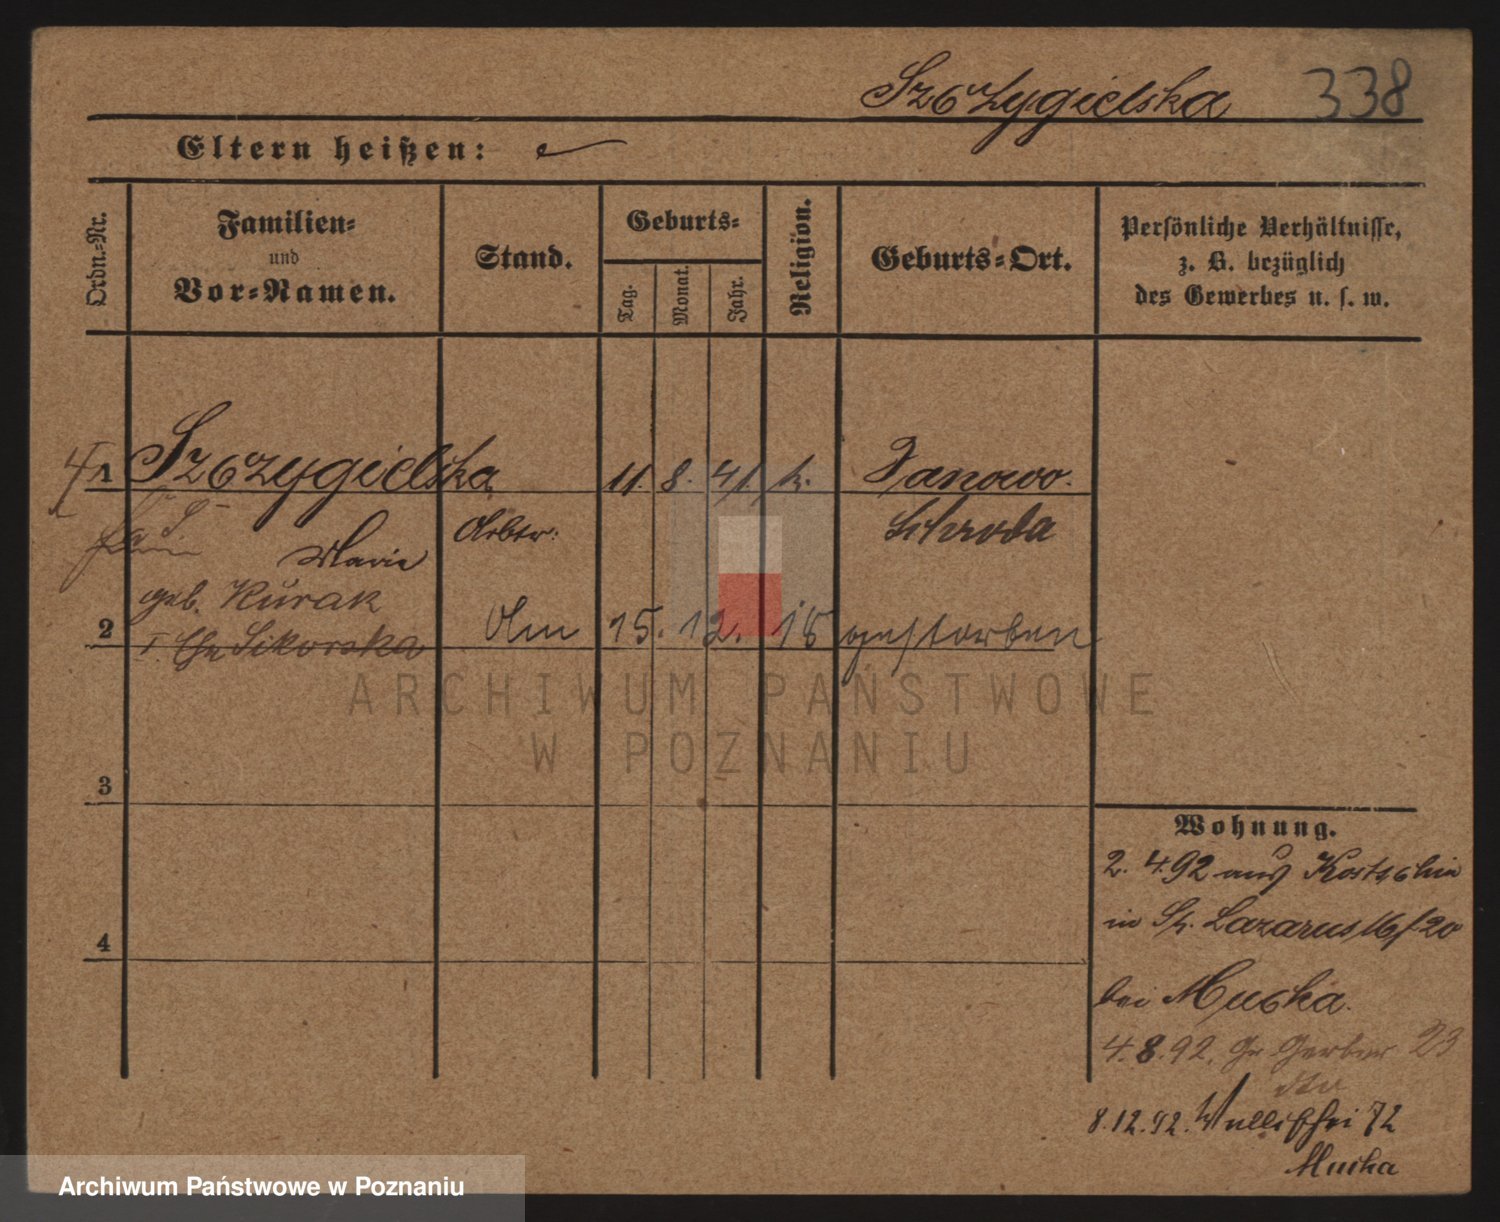 Szczygielska 338
Eltern heißen:
Ordn.-Nr.
Familien-
und
Vor-Namen.
Stand.
Geburts-
Tag.
Monat.
Jahr.
Religion.
Geburts-Ort.
Persönliche Verhältnisse,
z. B. bezüglich
des Gewerbes u. s. w.
1 Szczygielska 11. 8. 41. k. Janowo.
Arbtr: Schroda
Marie
geb. Kurak
2 I. Ehe Sikorska Am 15. 12. 18 gestorben
3
4
ARCHIWUM PAŃSTWOWE
W POZNANIU
Wohnung.
2. 4. 92 aus Kostschin
in St. Lazarus 16 f. 20
bei Mucha.
4. 8. 92. Gr Gerber 23
dto
8. 12. 92. Wallischei 72
Mucha
Archiwum Państwowe w Poznaniu